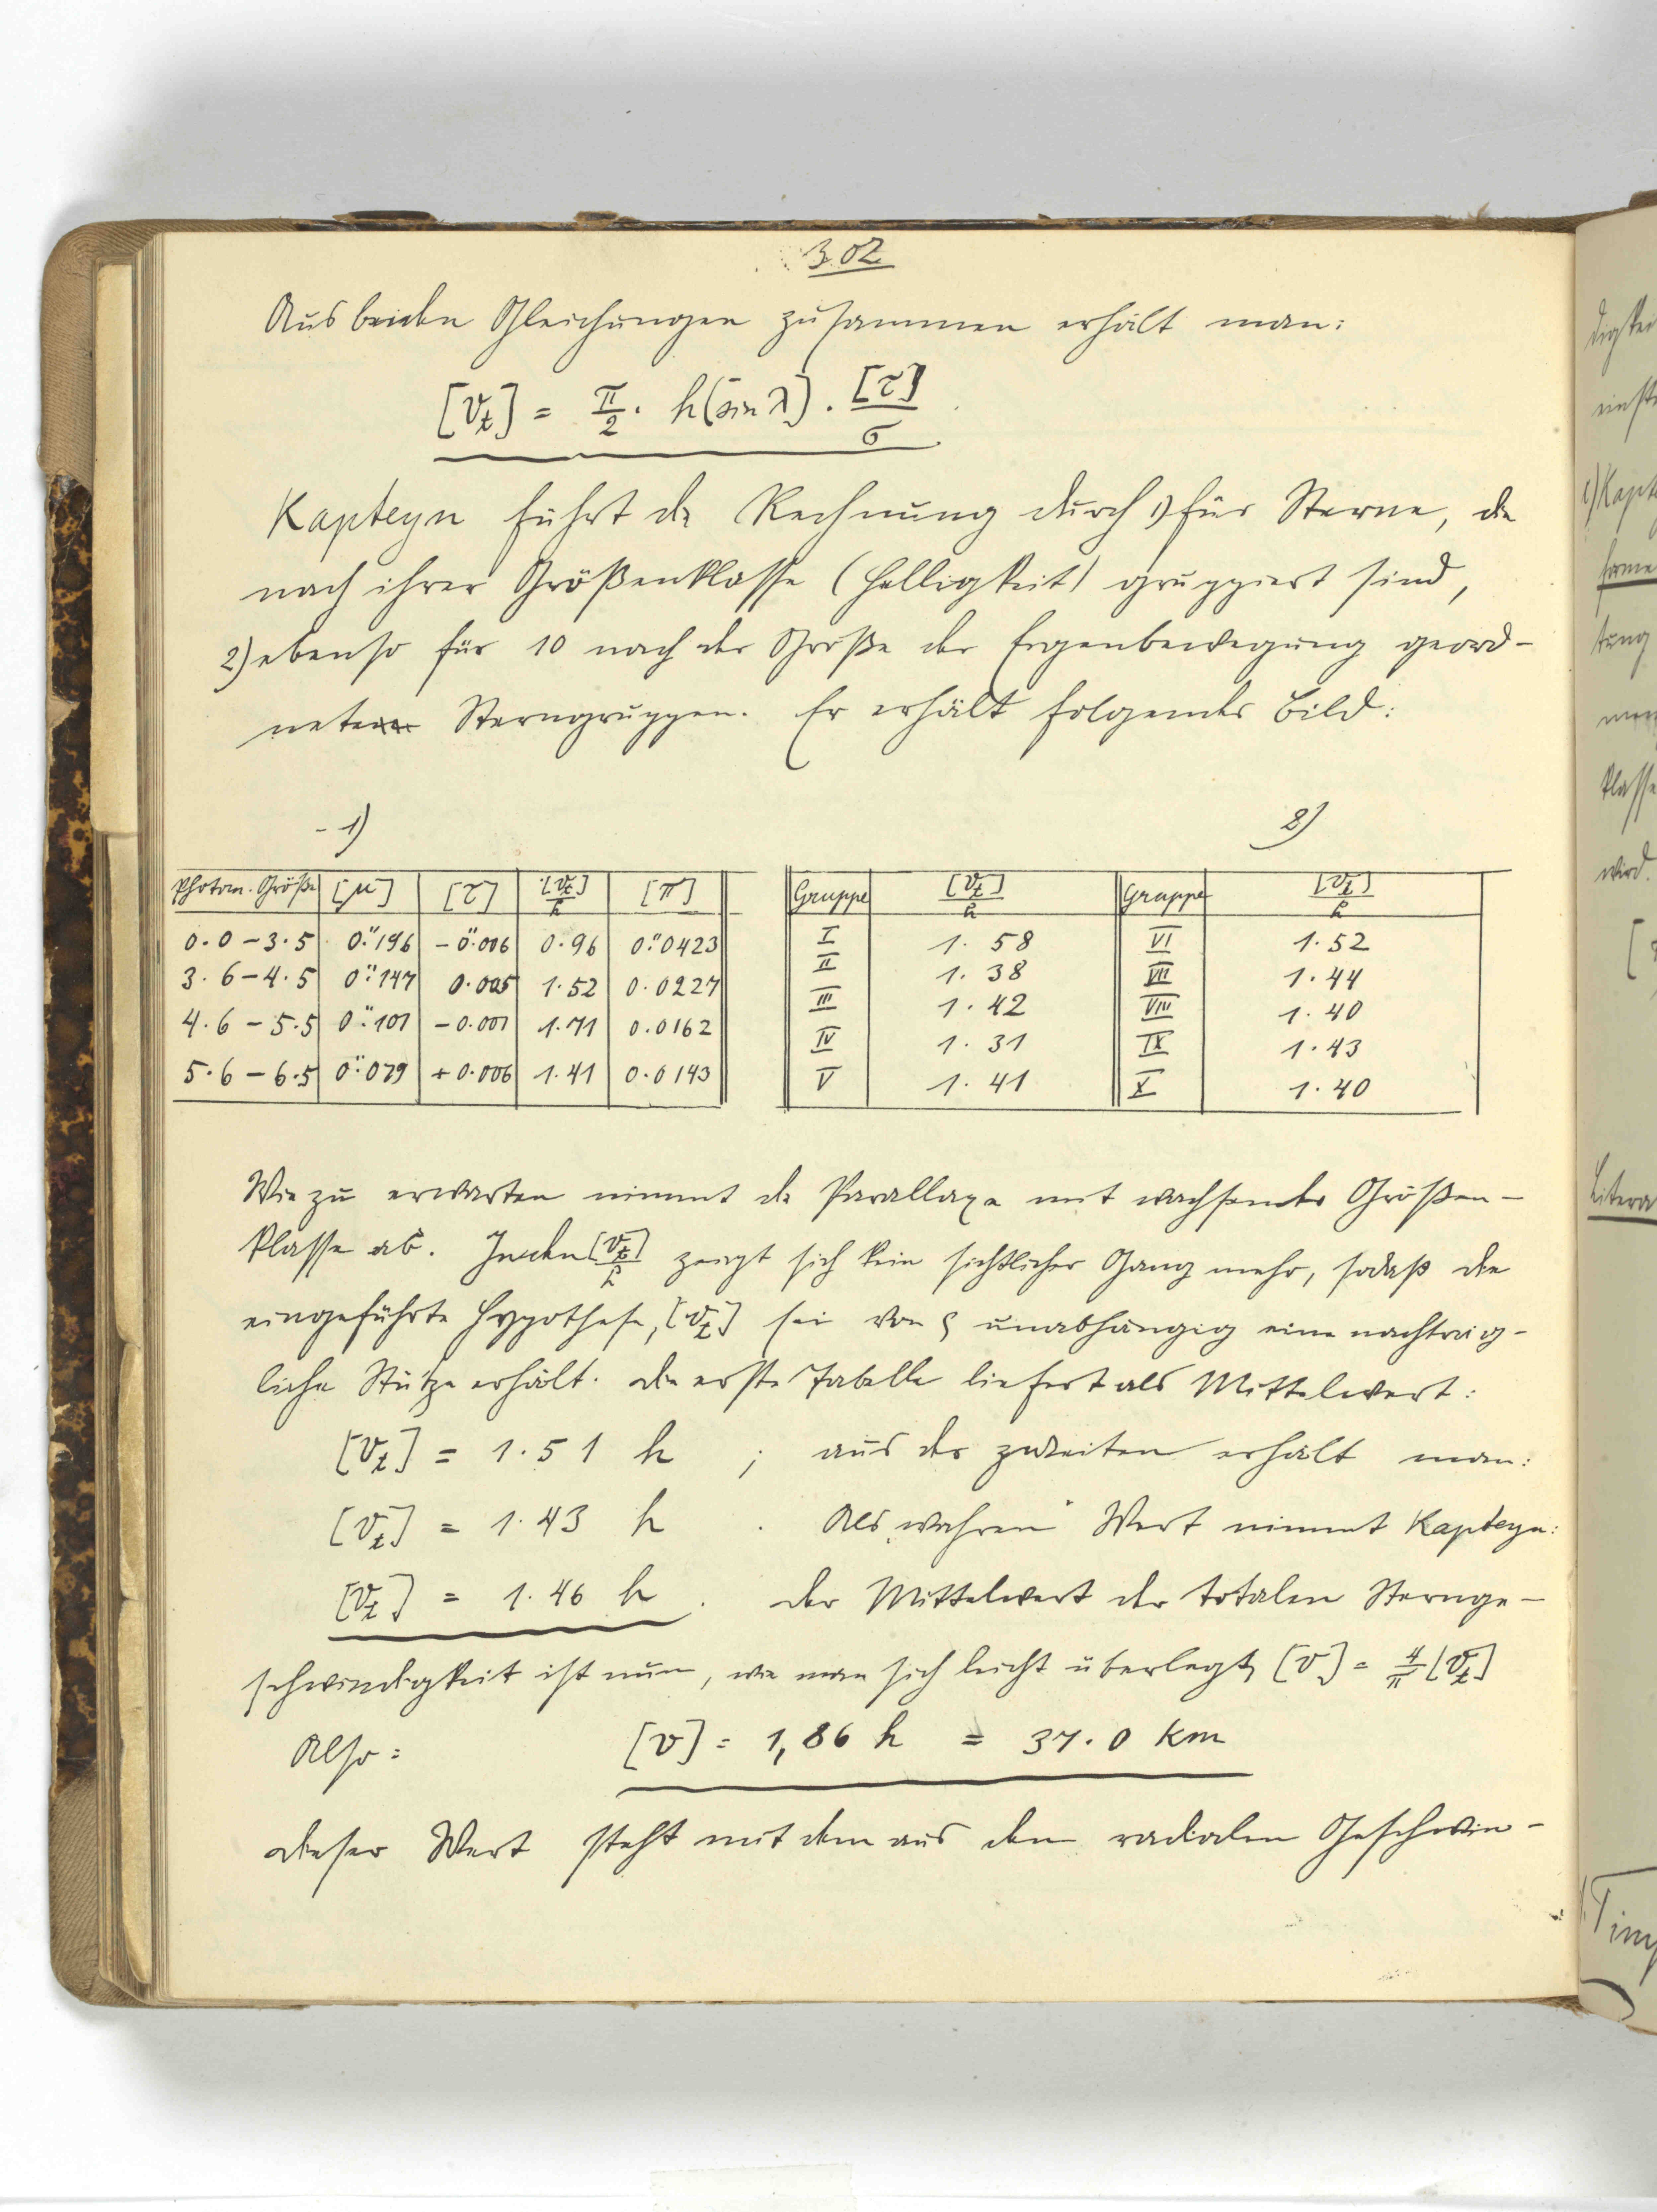 302
Aus beiden Gleichungen zusammen erhält man:
[v_t] = π/2 · h(sin λ) · [τ]/σ
Kapteyn führt die Rechnung durch 1) für Sterne, die
nach ihrer Größenklasse (Helligkeit) gruppiert sind,
2) ebenso für 10 nach der Größe der Eigenbewegung geord-
nete Sterngruppen. Er erhält folgendes Bild:
1) 2)
Photom. Größe [μ] [τ] [v_t]/h [π] Gruppe [v_t]/h Gruppe [v_t]/h
0.0-3.5 0."196 -0."006 0.96 0."0423 I 1.58 VI 1.52
3.6-4.5 0."147 0.005 1.52 0.0227 II 1.38 VII 1.44
4.6-5.5 0."101 -0.001 1.71 0.0162 III 1.42 VIII 1.40
IV 1.31 IX 1.43
5.6-6.5 0."079 +0.006 1.41 0.0143 V 1.41 X 1.40
Wie zu erwarten nimmt die Parallaxe mit wachsender Größen-
klasse ab. In den [v_t]/h zeigt sich kein sichtlicher Gang mehr, sodaß die
eingeführte Hypothese, [v_t] sei von ϱ unabhängig eine nachträg-
liche Stütze erhält. Die erste Tabelle liefert als Mittelwert:
[v_t] = 1.51 h ; aus der zweiten erhält man:
[v_t] = 1.43 h . Als „wahren" Wert nimmt Kapteyn:
[v_t] = 1.46 h . Der Mittelwert der totalen Sternge-
schwindigkeit ist nun, wie man sich leicht überlegt, [v] = 4/π [v_t]
Also: [v] = 1,86 h = 37.0 km
Dieser Wert steht mit dem aus den radialen Geschwin-